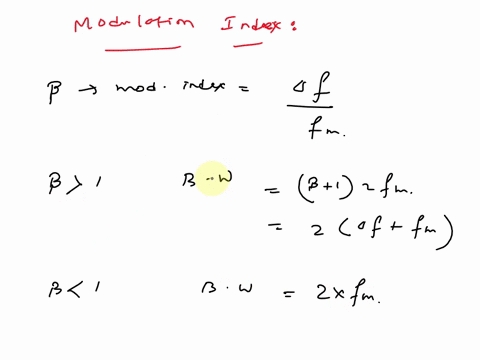 Modulation Index:
β → mod. index = Δf / fm.
β > 1 B.W = (β+1) 2fm.
= 2 (Δf + fm)
β < 1 B.W = 2 x fm.